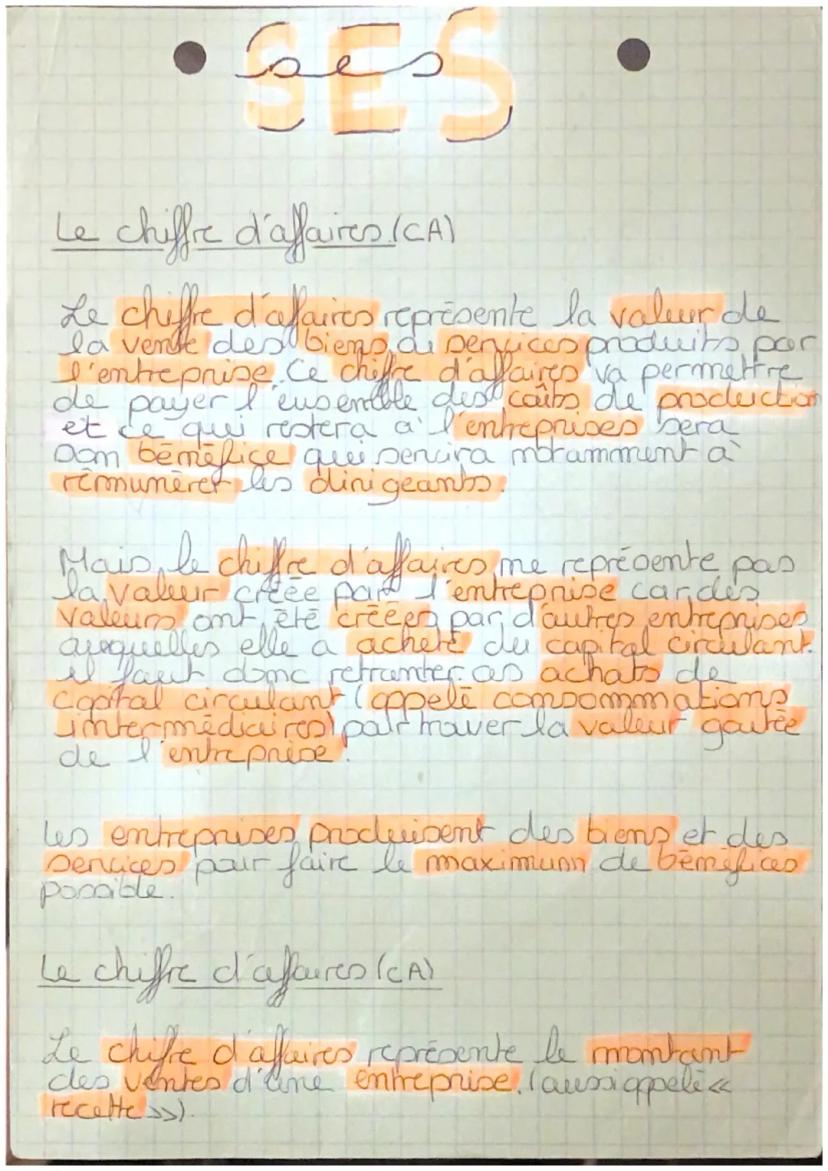 SES
ses
Le chiffre d'affaires (CA)
Le chiffre d'affaires représente la valeur de
la vente des biens di services produits par
l'entreprise. Ce chiffre d'affaires va permettre
de payer l'ensemble des coûts de production
et ce qui restera à l'entreprises sera
son bénéfice qui servira notamment à
rémunérer les dirigeants.
Mais, le chiffre d'affaires ne représente pas
la valeur créée par l'entreprise car des
valeurs ont été créées par d'autres entreprises
auxquelles elle a acheté du capital circulant.
il faut donc retranter ces achats de
capital circulant (appelé consommations
intermédiaires) pour trouver la valeur goutée
de l'entreprise.
Les entreprises produisent des biens et des
services pour faire le maximum de bénéfices
possible.
Le chiffre d'affaires (CA)
Le chiffre d'affaires représente le montant
des ventes d'une entreprise. (aussi appelé «
recette »).